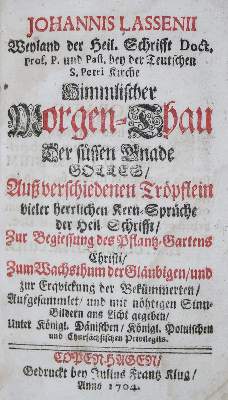 JOHANNIS LASSENII
Weyland der Heil. Schrifft Doct.
Prof. P. und Past. bey der Teutschen
S. Petri Kirche
Himmlischer
Morgen-Thau
Der süssen Gnade
GOTTES/
Auß verschiedenen Tröpflein
vieler herrlichen Kern-Sprüche
der Heil. Schrifft/
Zur Begiessung des Pflantz-Gartens
Christi/
Zum Wachsthum der Gläubigen/ und
zur Erqvickung der Bekümmerten/
Auffgesammlet/ und mit nöhtigen Sinn-
Bildern ans Licht gegeben/
Unter Königl. Dänischen/ Königl. Polnischen
und Chursächsischen Privilegiis.
COPENHAGEN/
Gedruckt bey Julius Frantz Klug/
Anno 1704.